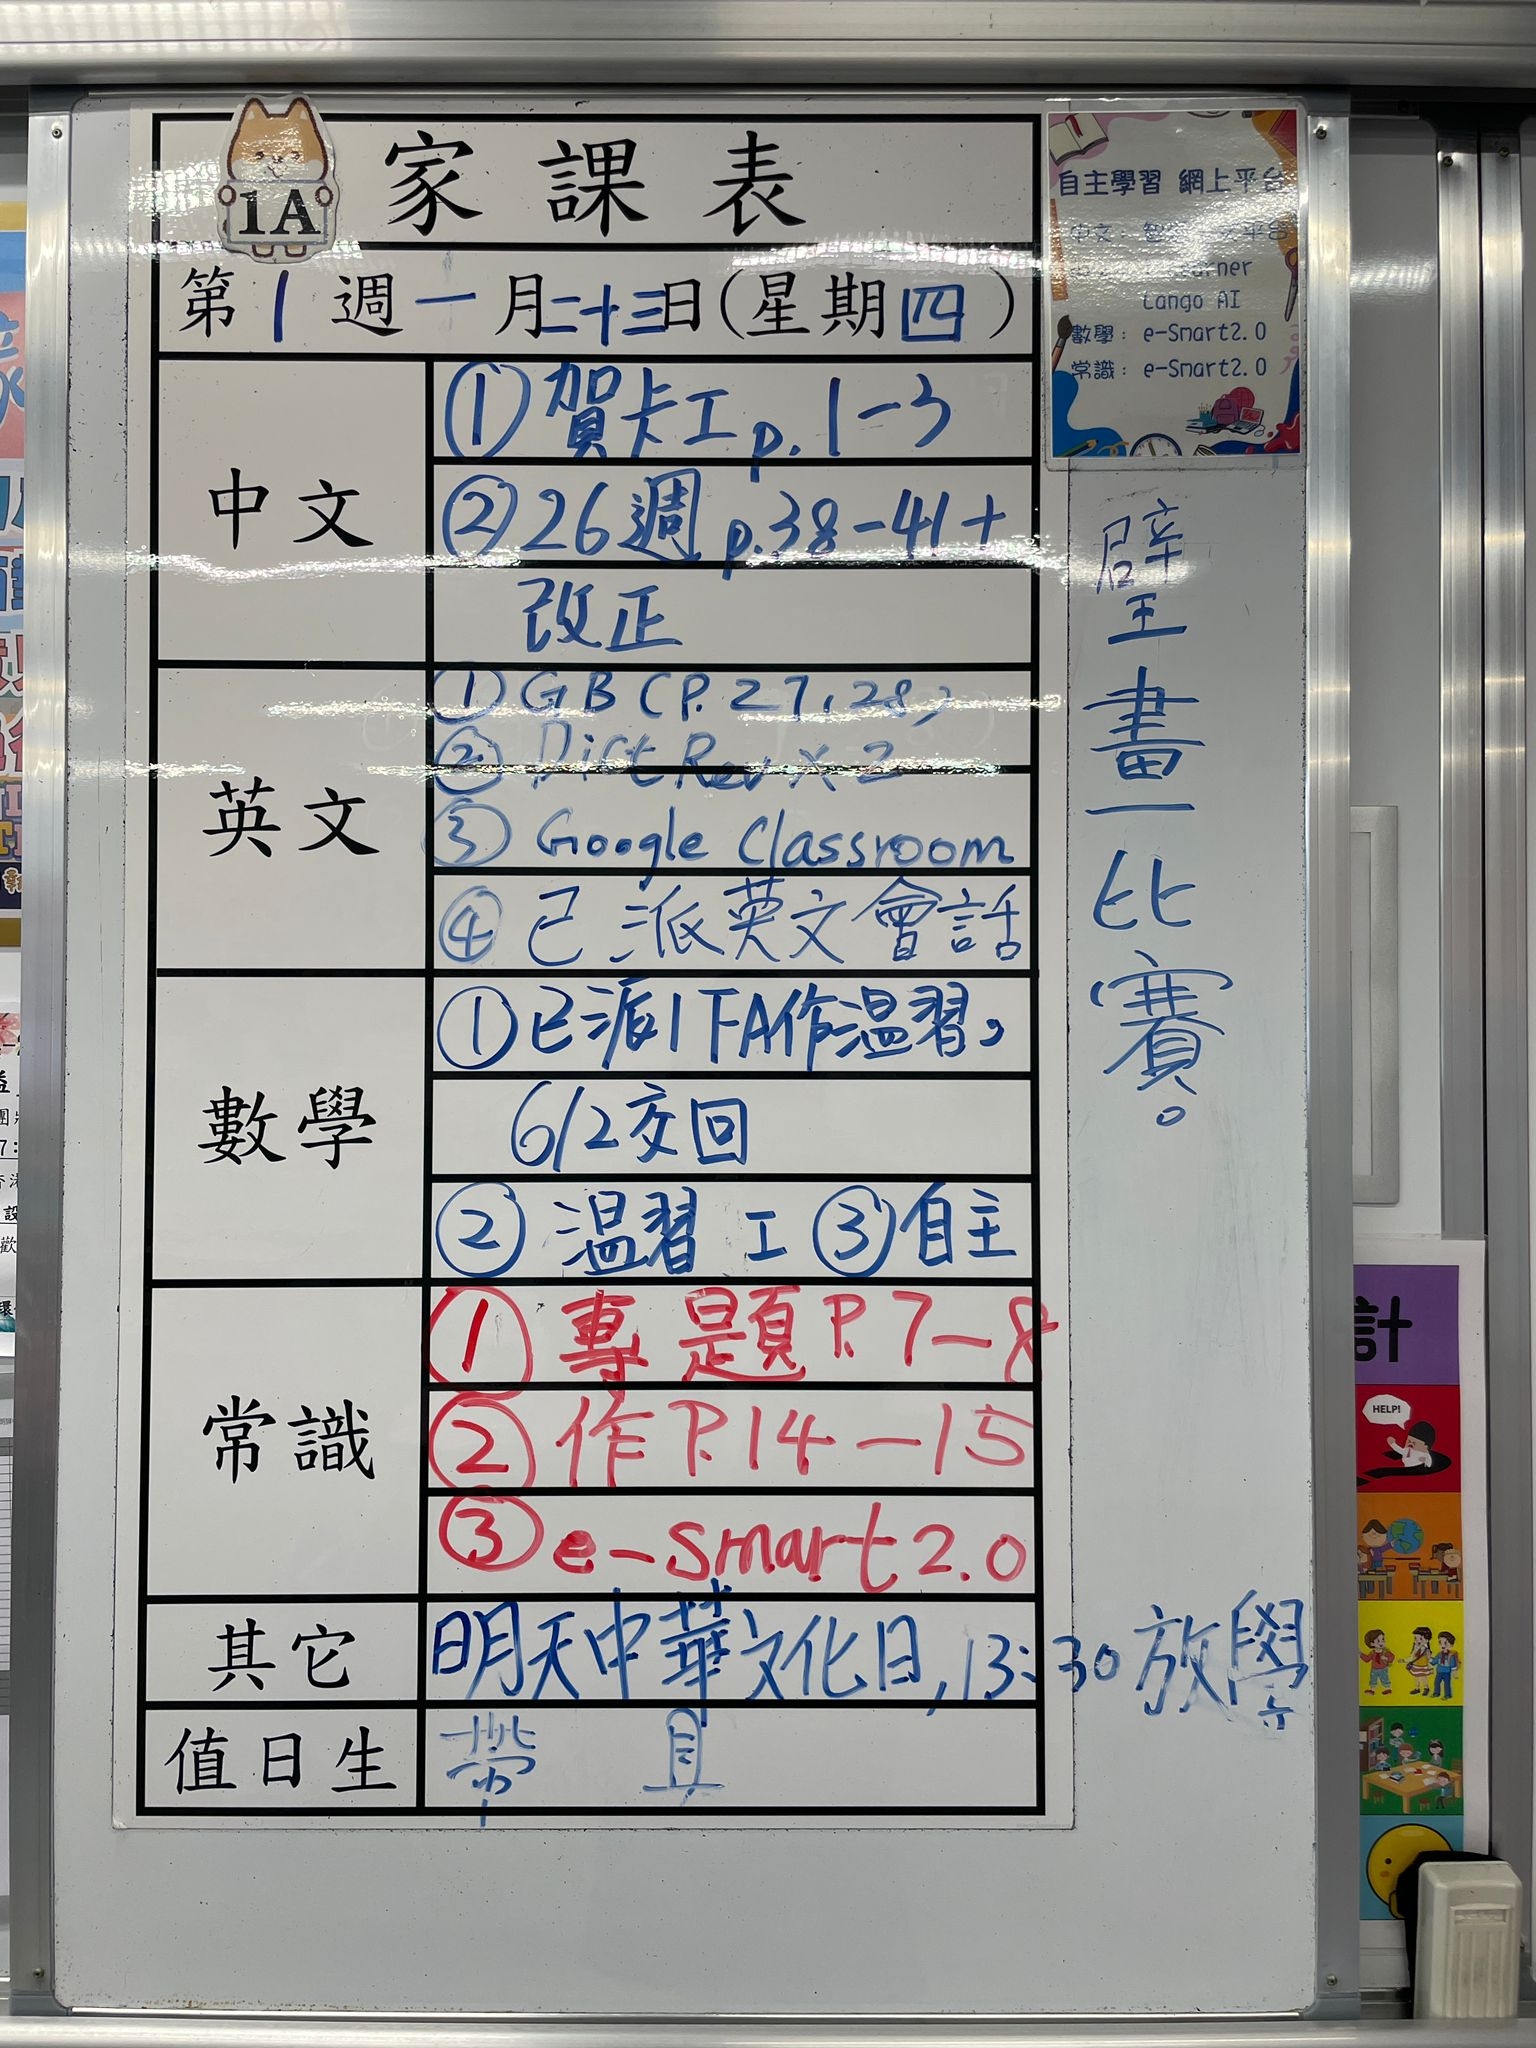 1A
家課表
第1週一月二十三日(星期四)
中文
①賀卡工p.1-3
②26週p.38-41+
改正
英文
①GB(P.27,28)
②Dict Rev x 2
③Google Classroom
④已派英文會話
數學
①已派1下A作溫習。
6/2交回
②溫習工③自主
常識
①專題P.7-8
②作P.14-15
③e-smart2.0
其它
明天中華文化日,13:30放學
值日生
帶
自主學習 網上平台
中文:
Lango AI
數學: e-Smart2.0
常識: e-Smart2.0
壁畫比賽。
計
HELP!